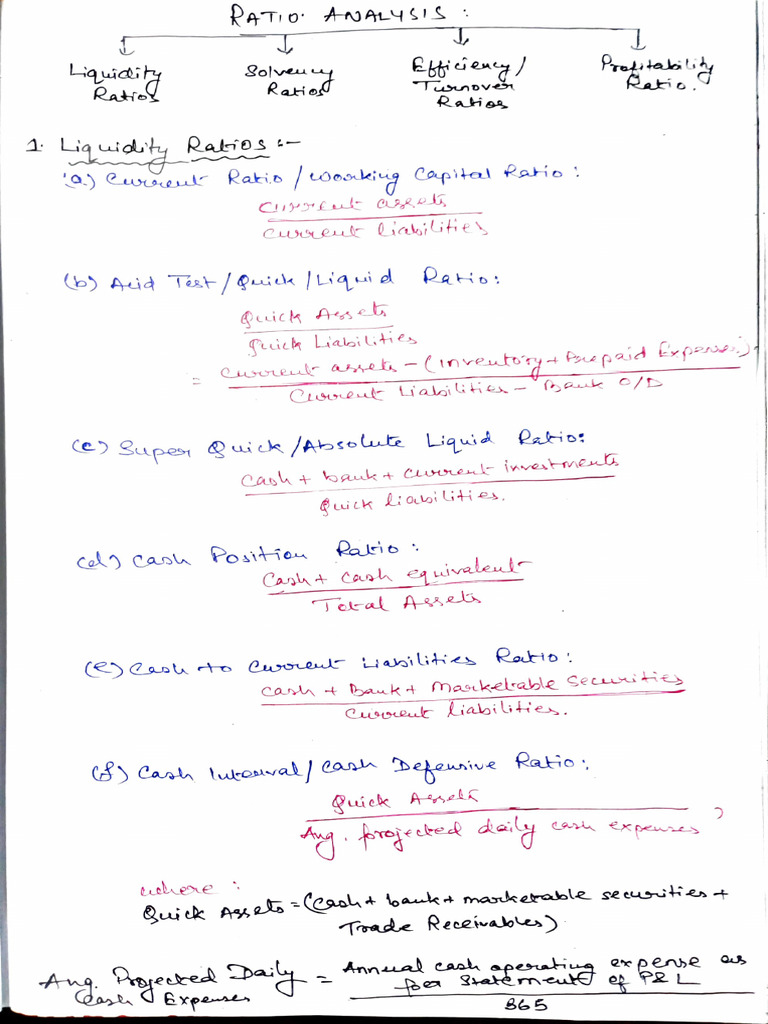 RATIO ANALYSIS :
Liquidity Ratios
Solvency Ratios
Efficiency / Turnover Ratios
Profitability Ratio.
1. Liquidity Ratios :-
(a) Current Ratio / Working Capital Ratio :
Current assets
Current liabilities
(b) Acid Test / Quick / Liquid Ratio :
Quick Assets
Quick Liabilities
= Current assets - (Inventory + Prepaid Expenses).
Current Liabilities - Bank O/D
(c) Super Quick / Absolute Liquid Ratio :
Cash + bank + current investments
Quick liabilities.
(d) Cash Position Ratio :
Cash + cash equivalent
Total Assets
(e) Cash to Current Liabilities Ratio :
Cash + Bank + Marketable Securities
Current liabilities.
(f) Cash Interval / Cash Defensive Ratio :
Quick Assets
Avg. projected daily cash expenses ,
where :
Quick Assets = (Cash + bank + marketable securities +
Trade Receivables)
Avg. Projected Daily Cash Expenses = Annual cash operating expense as
per Statement of P&L
365